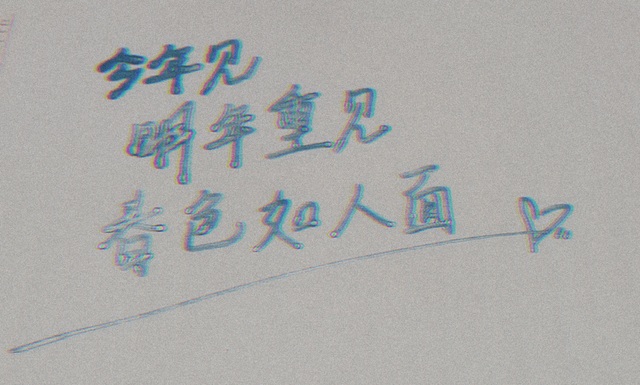 今年见
明年重见
春色如人面